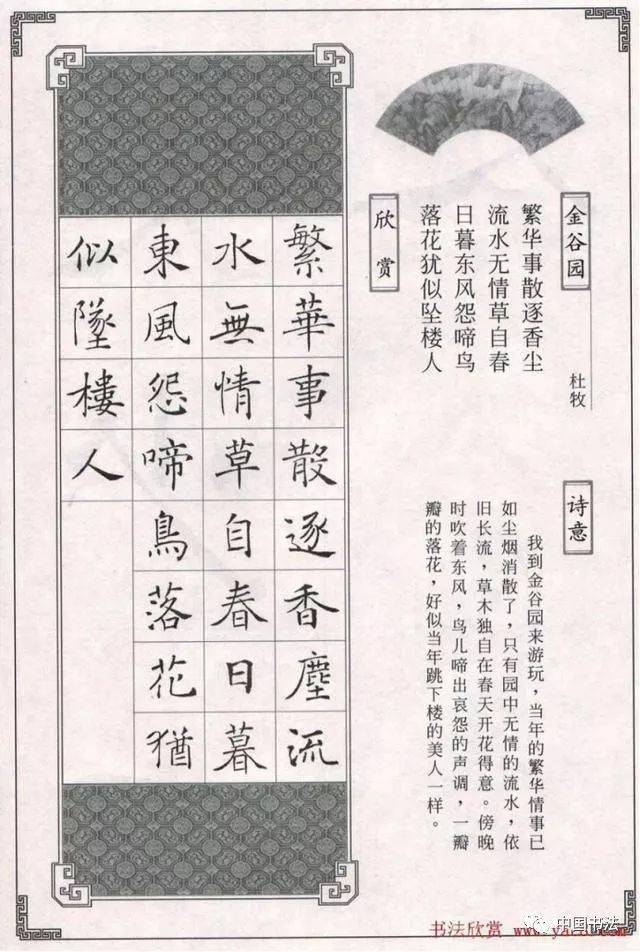 金谷园
杜牧
繁华事散逐香尘
流水无情草自春
日暮东风怨啼鸟
落花犹似坠楼人
诗意
我到金谷园来游玩，当年的繁华情事已
如尘烟消散了，只有园中无情的流水，依
旧长流，草木独自在春天开花得意。傍晚
时吹着东风，鸟儿啼出哀怨的声调，一瓣
瓣的落花，好似当年跳下楼的美人一样。
欣赏
繁華事散逐香塵流
水無情草自春日暮
東風怨啼鳥落花猶
似墜樓人
书法欣赏
中国书法